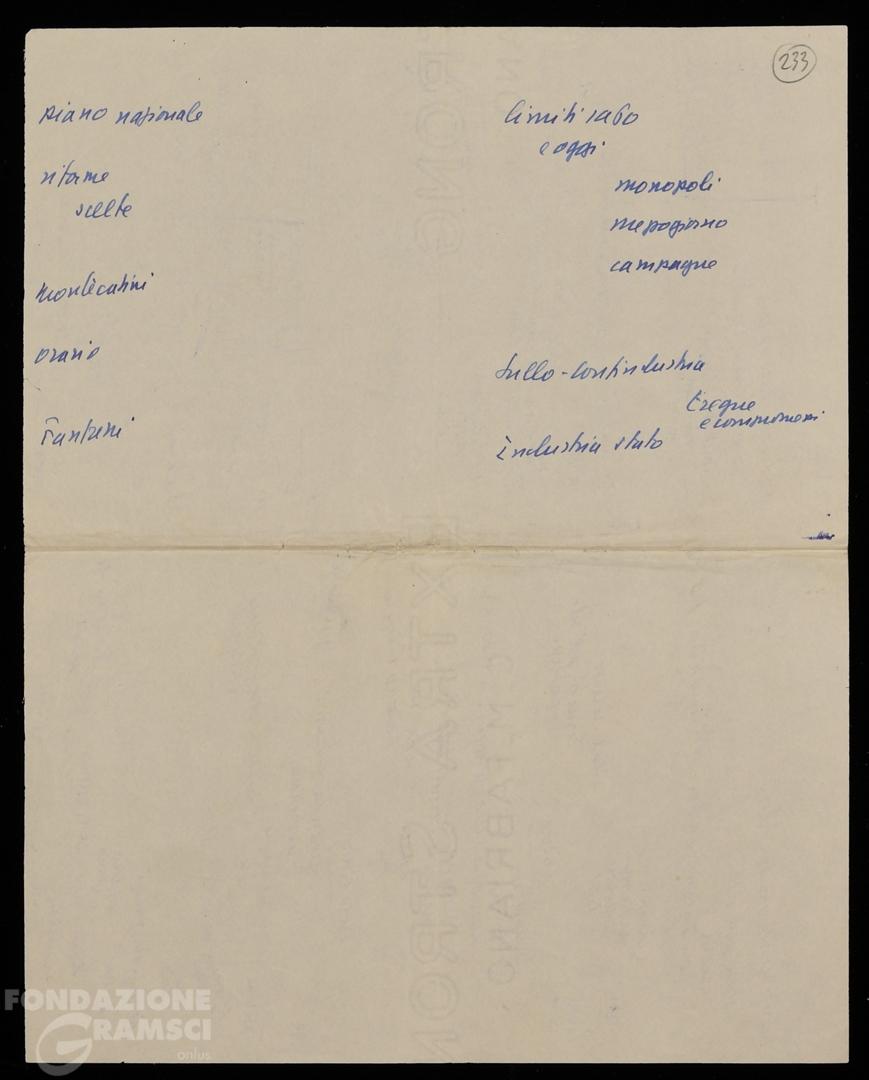 233
piano nazionale
riforme
scelte
Montecatini
orario
Fanfani
limiti 1960
e oggi
monopoli
mezzogiorno
campagne
Sullo - Confindustria
tregue
e compromessi
industria stato
EXTRA STRONG
C. M. FABRIANO
FONDAZIONE
GRAMSCI
onlus